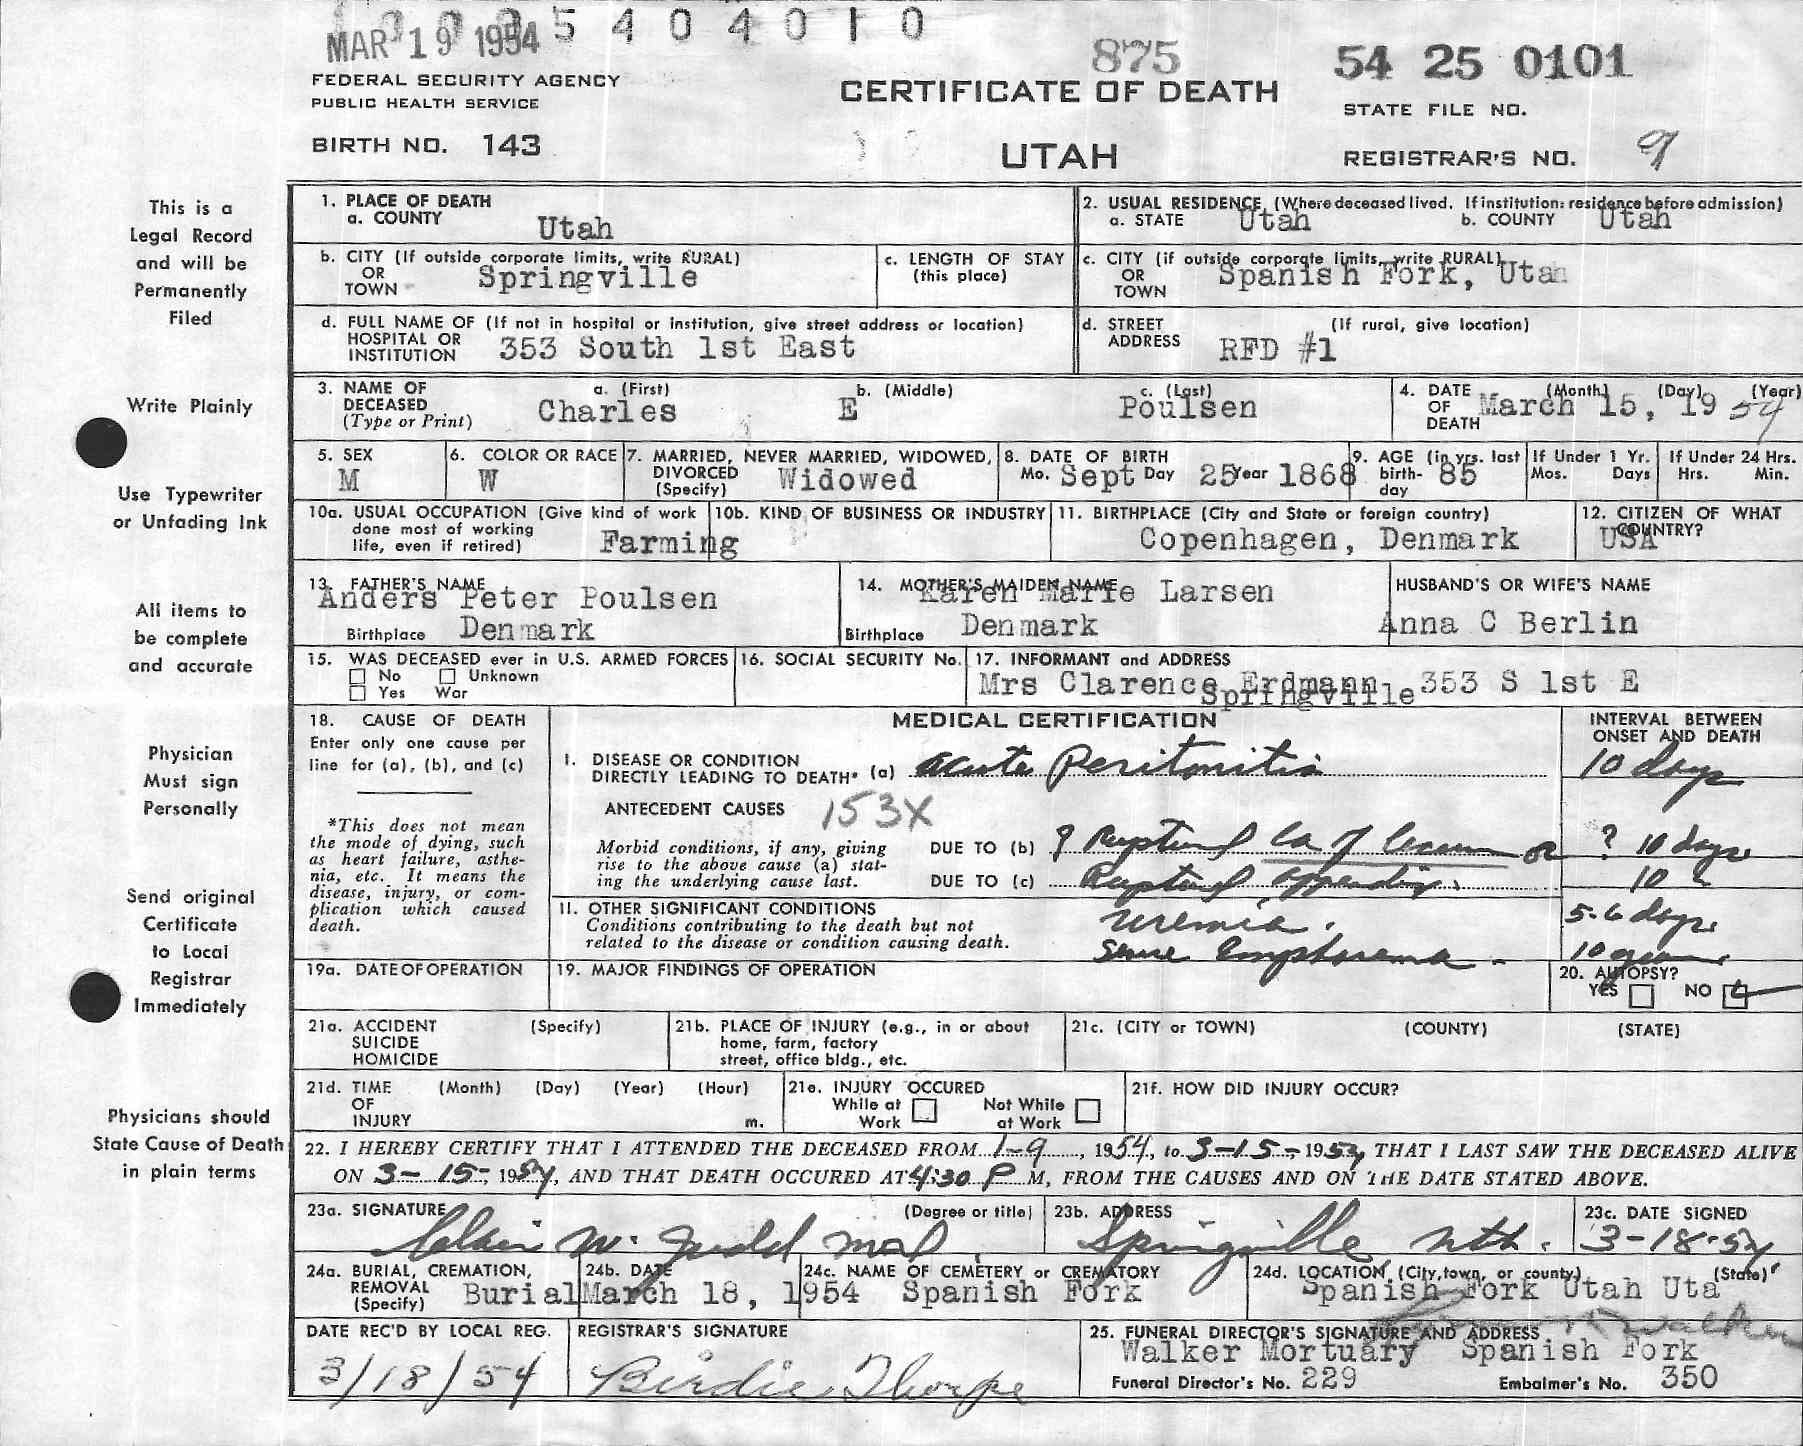 5 4 0 4 0 1 0
MAR 19 1954
875
54 25 0101
FEDERAL SECURITY AGENCY
PUBLIC HEALTH SERVICE
CERTIFICATE OF DEATH
STATE FILE NO.
BIRTH NO. 143
UTAH
REGISTRAR'S NO. 9
This is a
Legal Record
and will be
Permanently
Filed
Write Plainly
Use Typewriter
or Unfading Ink
All items to
be complete
and accurate
Physician
Must sign
Personally
Send original
Certificate
to Local
Registrar
Immediately
Physicians should
State Cause of Death
in plain terms
1. PLACE OF DEATH
a. COUNTY Utah
2. USUAL RESIDENCE (Where deceased lived. If institution: residence before admission)
a. STATE Utah b. COUNTY Utah
b. CITY (If outside corporate limits, write RURAL)
OR
TOWN Springville
c. LENGTH OF STAY
(this place)
c. CITY (if outside corporate limits, write RURAL)
OR
TOWN Spanish Fork, Utah
d. FULL NAME OF (If not in hospital or institution, give street address or location)
HOSPITAL OR
INSTITUTION 353 South 1st East
d. STREET (If rural, give location)
ADDRESS RFD #1
3. NAME OF DECEASED (Type or Print)
a. (First) b. (Middle) c. (Last)
Charles E Poulsen
4. DATE OF DEATH (Month) (Day) (Year)
March 15, 1954
5. SEX
M
6. COLOR OR RACE
W
7. MARRIED, NEVER MARRIED, WIDOWED,
DIVORCED
(Specify) Widowed
8. DATE OF BIRTH
Mo. Sept Day 25 Year 1868
9. AGE (in yrs. last
birth-
day 85
If Under 1 Yr.
Mos. Days
If Under 24 Hrs.
Hrs. Min.
10a. USUAL OCCUPATION (Give kind of work
done most of working
life, even if retired) Farming
10b. KIND OF BUSINESS OR INDUSTRY
11. BIRTHPLACE (City and State or foreign country)
Copenhagen, Denmark
12. CITIZEN OF WHAT
COUNTRY?
USA
13. FATHER'S NAME
Anders Peter Poulsen
Birthplace Denmark
14. MOTHER'S MAIDEN NAME
Karen Marie Larsen
Birthplace Denmark
HUSBAND'S OR WIFE'S NAME
Anna C Berlin
15. WAS DECEASED ever in U.S. ARMED FORCES
No Unknown
Yes War
16. SOCIAL SECURITY No.
17. INFORMANT and ADDRESS
Mrs Clarence Erdmann 353 S 1st E
Springville
18. CAUSE OF DEATH
Enter only one cause per
line for (a), (b), and (c)
*This does not mean
the mode of dying, such
as heart failure, asthe-
nia, etc. It means the
disease, injury, or com-
plication which caused
death.
MEDICAL CERTIFICATION
INTERVAL BETWEEN
ONSET AND DEATH
I. DISEASE OR CONDITION
DIRECTLY LEADING TO DEATH* (a) acute Peritonitis 10 days
ANTECEDENT CAUSES 153X
Morbid conditions, if any, giving
rise to the above cause (a) stat-
ing the underlying cause last.
DUE TO (b) ? Ruptured Ca of Cecum or ? 10 days
DUE TO (c) Ruptured appendix. 10
II. OTHER SIGNIFICANT CONDITIONS
Conditions contributing to the death but not
related to the disease or condition causing death.
uremia. 5-6 days
Severe Emphysema 10 years
19a. DATE OF OPERATION
19. MAJOR FINDINGS OF OPERATION
20. AUTOPSY?
YES NO
21a. ACCIDENT (Specify)
SUICIDE
HOMICIDE
21b. PLACE OF INJURY (e.g., in or about
home, farm, factory
street, office bldg., etc.
21c. (CITY or TOWN) (COUNTY) (STATE)
21d. TIME (Month) (Day) (Year) (Hour)
OF
INJURY m.
21e. INJURY OCCURED
While at Work Not While at Work
21f. HOW DID INJURY OCCUR?
22. I HEREBY CERTIFY THAT I ATTENDED THE DECEASED FROM 1-9, 1954, to 3-15-1954, THAT I LAST SAW THE DECEASED ALIVE
ON 3-15-, 1954, AND THAT DEATH OCCURED AT 4:30 P M, FROM THE CAUSES AND ON THE DATE STATED ABOVE.
23a. SIGNATURE (Degree or title)
Clair W. Judd MD
23b. ADDRESS
Springville Utah.
23c. DATE SIGNED
3-18-54
24a. BURIAL, CREMATION,
REMOVAL
(Specify) Burial
24b. DATE
March 18, 1954
24c. NAME OF CEMETERY or CREMATORY
Spanish Fork
24d. LOCATION (City, town, or county) (State)
Spanish Fork Utah Uta
DATE REC'D BY LOCAL REG.
3/18/54
REGISTRAR'S SIGNATURE
Birdie Thorpe
25. FUNERAL DIRECTOR'S SIGNATURE AND ADDRESS
Walker
Walker Mortuary Spanish Fork
Funeral Director's No. 229 Embalmer's No. 350